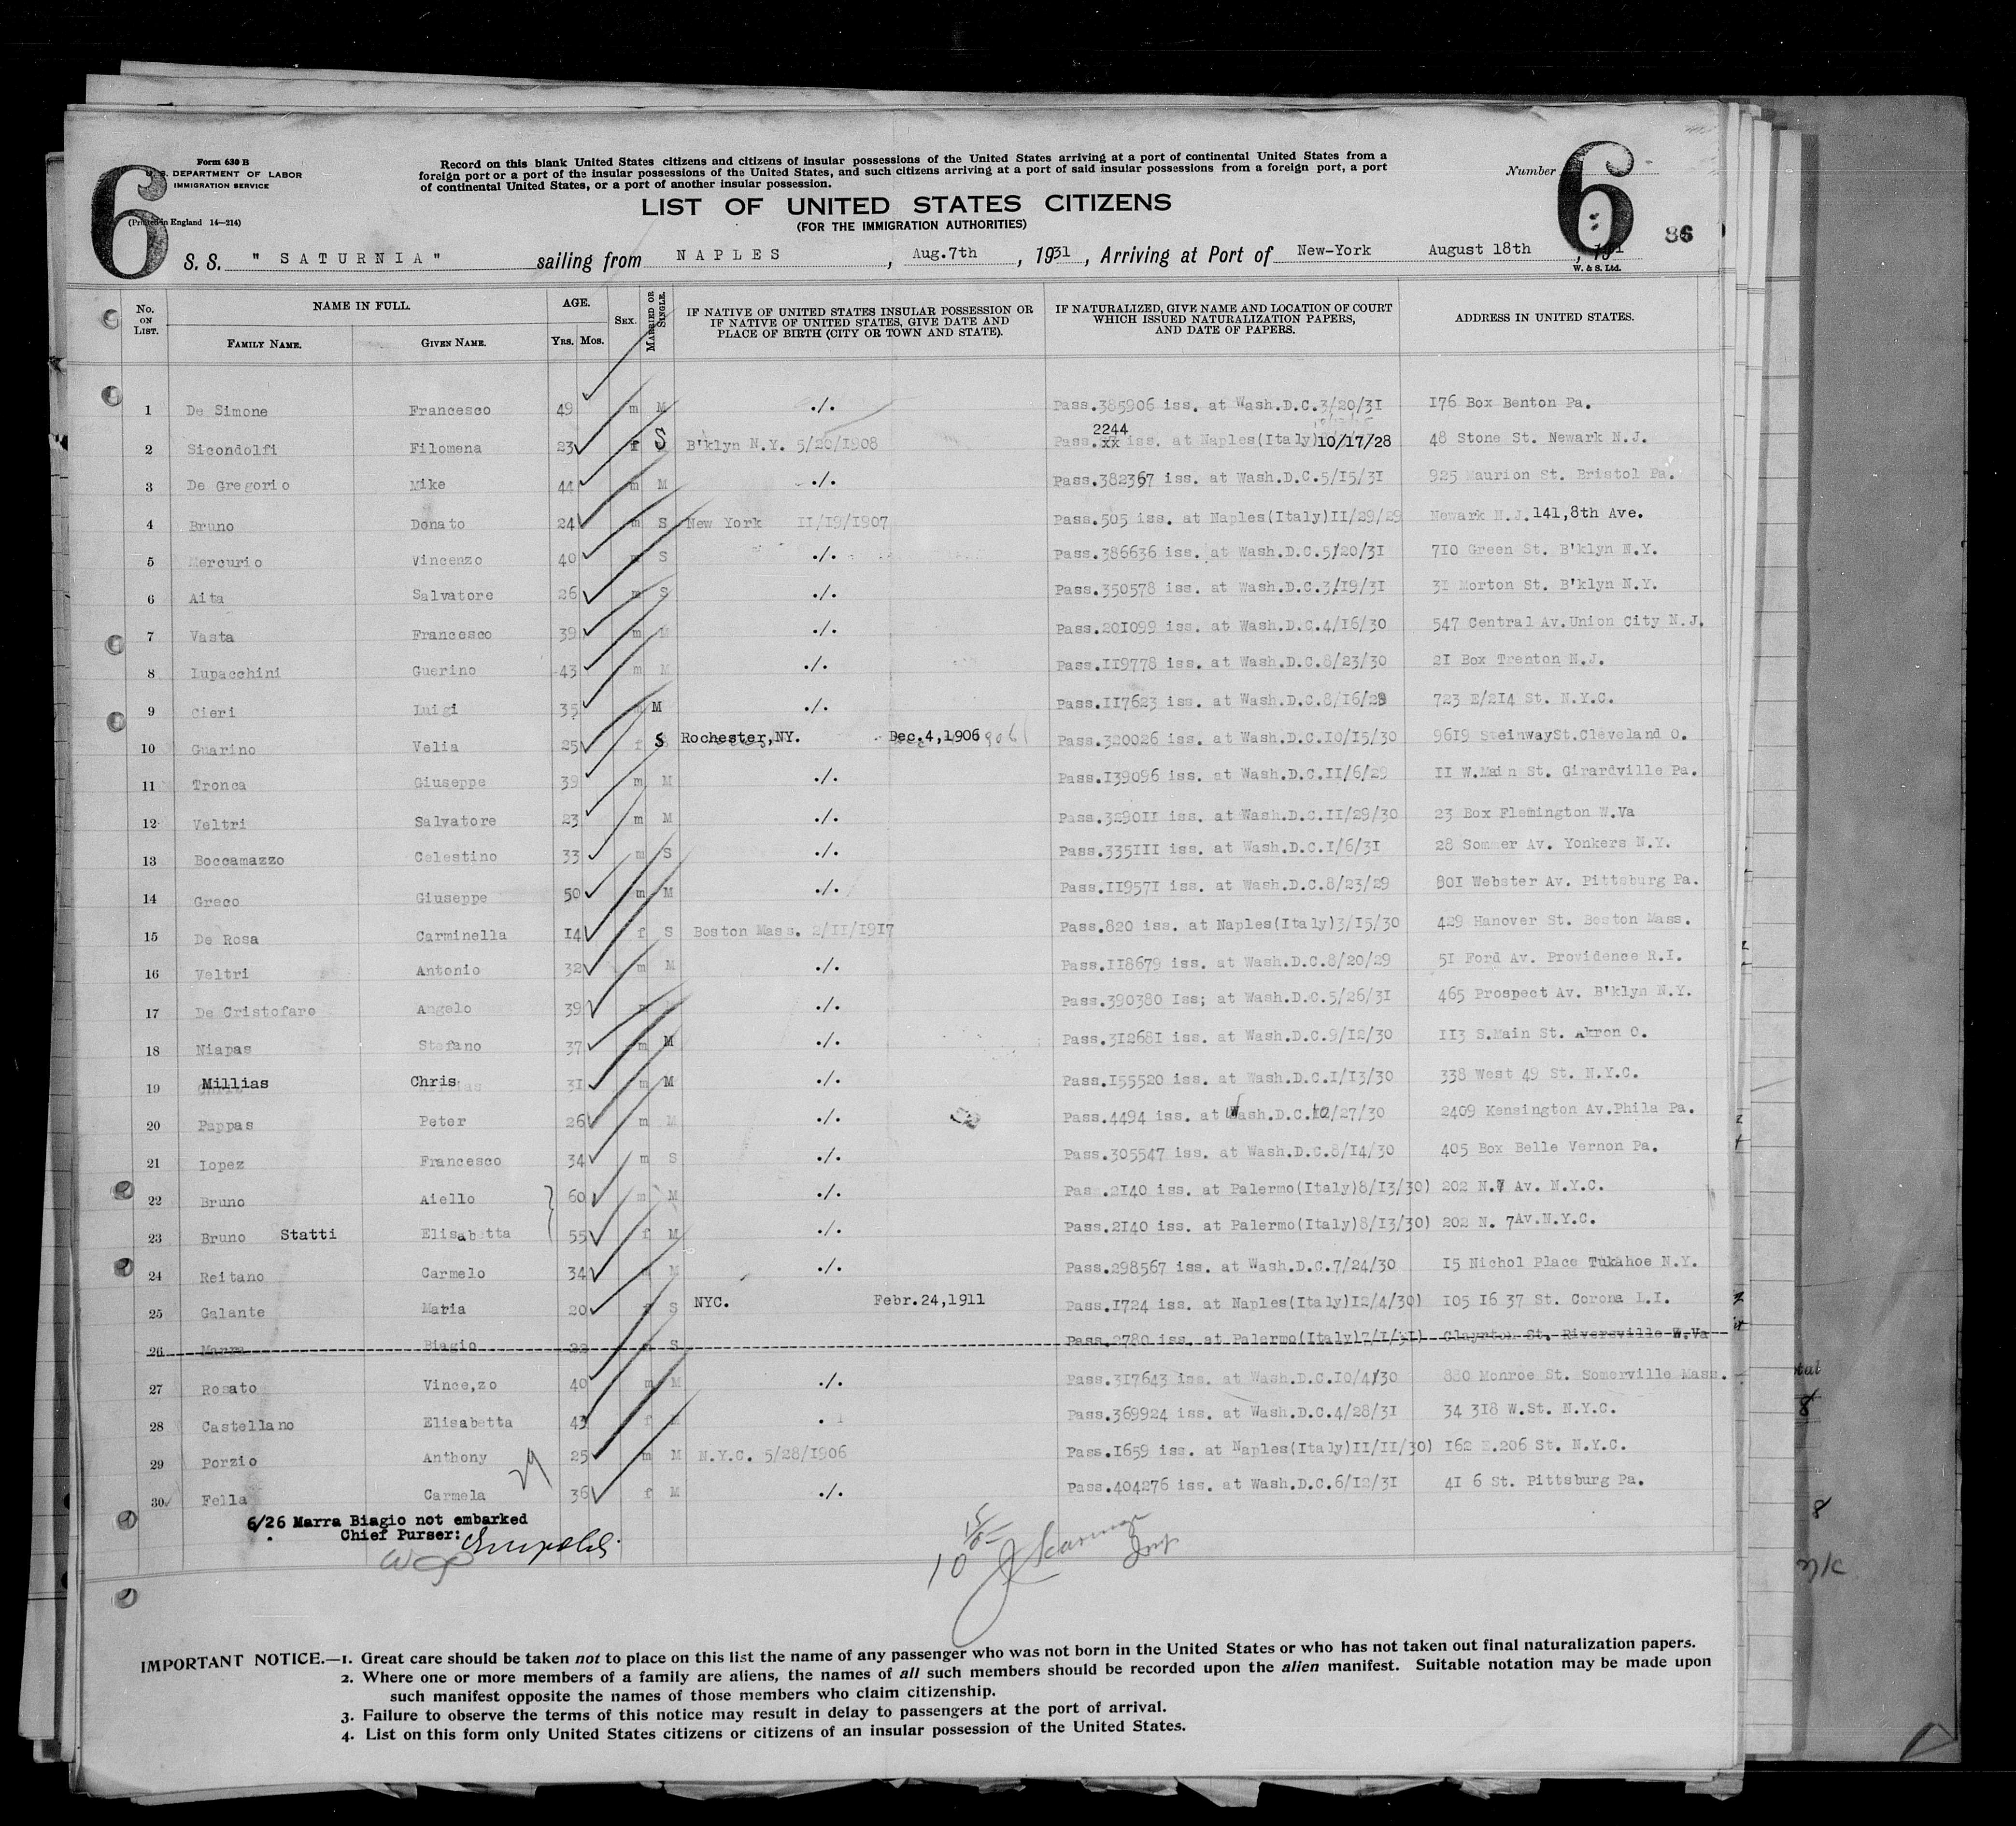 Form 630 B
U.S. DEPARTMENT OF LABOR
IMMIGRATION SERVICE
(Printed in England 14—214)
6
Record on this blank United States citizens and citizens of insular possessions of the United States arriving at a port of continental United States from a
foreign port or a port of the insular possessions of the United States, and such citizens arriving at a port of said insular possessions from a foreign port, a port
of continental United States, or a port of another insular possession.
Number
6
86
LIST OF UNITED STATES CITIZENS
(FOR THE IMMIGRATION AUTHORITIES)
S. S. " SATURNIA" sailing from NAPLES, Aug.7th, 1931, Arriving at Port of New-York August 18th, 1931
W. & S. Ltd.
No. ON LIST. NAME IN FULL. FAMILY NAME. GIVEN NAME. AGE. YRS. MOS. SEX. MARRIED OR SINGLE. IF NATIVE OF UNITED STATES INSULAR POSSESSION OR IF NATIVE OF UNITED STATES, GIVE DATE AND PLACE OF BIRTH (CITY OR TOWN AND STATE). IF NATURALIZED, GIVE NAME AND LOCATION OF COURT WHICH ISSUED NATURALIZATION PAPERS, AND DATE OF PAPERS. ADDRESS IN UNITED STATES.
1 De Simone Francesco 49 m M ./. Pass.385906 iss. at Wash.D.C.3/20/31 176 Box Benton Pa.
2 Sicondolfi Filomena 23 f S B'klyn N.Y. 5/20/1908 Pass.xx 2244 iss. at Naples(Italy)10/17/28 48 Stone St. Newark N.J.
3 De Gregorio Mike 44 m M ./. Pass.382367 iss. at Wash.D.C.5/15/31 925 Maurion St. Bristol Pa.
4 Bruno Donato 24 m S New York 11/19/1907 Pass.505 iss. at Naples(Italy)11/29/29 Newark N.J.141,8th Ave.
5 Mercurio Vincenzo 40 m S ./. Pass.386636 iss. at Wash.D.C.5/20/31 710 Green St. B'klyn N.Y.
6 Aita Salvatore 26 m S ./. Pass.350578 iss. at Wash.D.C.3/19/31 31 Morton St. B'klyn N.Y.
7 Vasta Francesco 39 m M ./. Pass.201099 iss. at Wash.D.C.4/16/30 547 Central Av.Union City N.J.
8 Iupacchini Guerino 43 m M ./. Pass.119778 iss. at Wash.D.C.8/23/30 21 Box Trenton N.J.
9 Cieri Luigi 35 M ./. Pass.117623 iss. at Wash.D.C.8/16/29 723 E/214 St. N.Y.C.
10 Guarino Velia 25 f S Rochester,NY. Dec.4,1906 Pass.320026 iss. at Wash.D.C.10/15/30 9619 SteinwaySt.Cleveland O.
11 Tronca Giuseppe 39 m M ./. Pass.139096 iss. at Wash.D.C.11/6/29 11 W.Main St. Girardville Pa.
12 Veltri Salvatore 23 m M ./. Pass.329011 iss. at Wash.D.C.11/29/30 23 Box Flemington W.Va
13 Boccamazzo Celestino 33 m S ./. Pass.335111 iss. at Wash.D.C.1/6/31 28 Sommer Av. Yonkers N.Y.
14 Greco Giuseppe 50 m M ./. Pass.119571 iss. at Wash.D.C.8/23/29 801 Webster Av. Pittsburg Pa.
15 De Rosa Carminella 14 f S Boston Mass. 2/11/1917 Pass.820 iss. at Naples(Italy)3/15/30 429 Hanover St. Boston Mass.
16 Veltri Antonio 32 m M ./. Pass.118679 iss. at Wash.D.C.8/20/29 51 Ford Av. Providence R.I.
17 De Cristofaro Angelo 39 m ./. Pass.390380 Iss; at Wash.D.C.5/26/31 465 Prospect Av. B'klyn N.Y.
18 Niapas Stefano 37 m M ./. Pass.312681 iss. at Wash.D.C.9/12/30 113 S.Main St. Akron O.
19 Millias Chris 31 m M ./. Pass.155520 iss. at Wash.D.C.1/13/30 338 West 49 St. N.Y.C.
20 Pappas Peter 26 m M ./. Pass.4494 iss. at Wash.D.C.10/27/30 2409 Kensington Av.Phila Pa.
21 Lopez Francesco 34 m S ./. Pass.305547 iss. at Wash.D.C.8/14/30 405 Box Belle Vernon Pa.
22 Bruno Aiello 60 m M ./. Pass.2140 iss. at Palermo(Italy)8/13/30) 202 N.7 Av. N.Y.C.
23 Bruno Statti Elisabetta 55 f M ./. Pass.2140 iss. at Palermo(Italy)8/13/30) 202 N. 7Av.N.Y.C.
24 Reitano Carmelo 34 m M ./. Pass.298567 iss. at Wash.D.C.7/24/30 15 Nichol Place Tukahoe N.Y.
25 Galante Maria 20 f S NYC. Febr.24,1911 Pass.1724 iss. at Naples(Italy)12/4/30) 105 16 37 St. Corona L.I.
26 Marra Biagio 22 S Pass.2780 iss. at Palermo(Italy)7/1/31) Clayrton St. Riversville W.Va
27 Rosato Vince,zo 40 m M ./. Pass.317643 iss. at Wash.D.C.10/4/30 880 Monroe St. Somerville Mass.
28 Castellano Elisabetta 43 f Pass.369924 iss. at Wash.D.C.4/28/31 34 318 W.St. N.Y.C.
29 Porzio Anthony 25 m M N.Y.C. 5/28/1906 Pass.1659 iss. at Naples(Italy)11/11/30) 162 E.206 St. N.Y.C.
30 Fella Carmela 36 f M ./. Pass.404276 iss. at Wash.D.C.6/12/31 41 6 St. Pittsburg Pa.
29
6/26 Marra Biagio not embarked
Chief Purser:
IMPORTANT NOTICE.—1. Great care should be taken not to place on this list the name of any passenger who was not born in the United States or who has not taken out final naturalization papers.
2. Where one or more members of a family are aliens, the names of all such members should be recorded upon the alien manifest. Suitable notation may be made upon
such manifest opposite the names of those members who claim citizenship.
3. Failure to observe the terms of this notice may result in delay to passengers at the port of arrival.
4. List on this form only United States citizens or citizens of an insular possession of the United States.